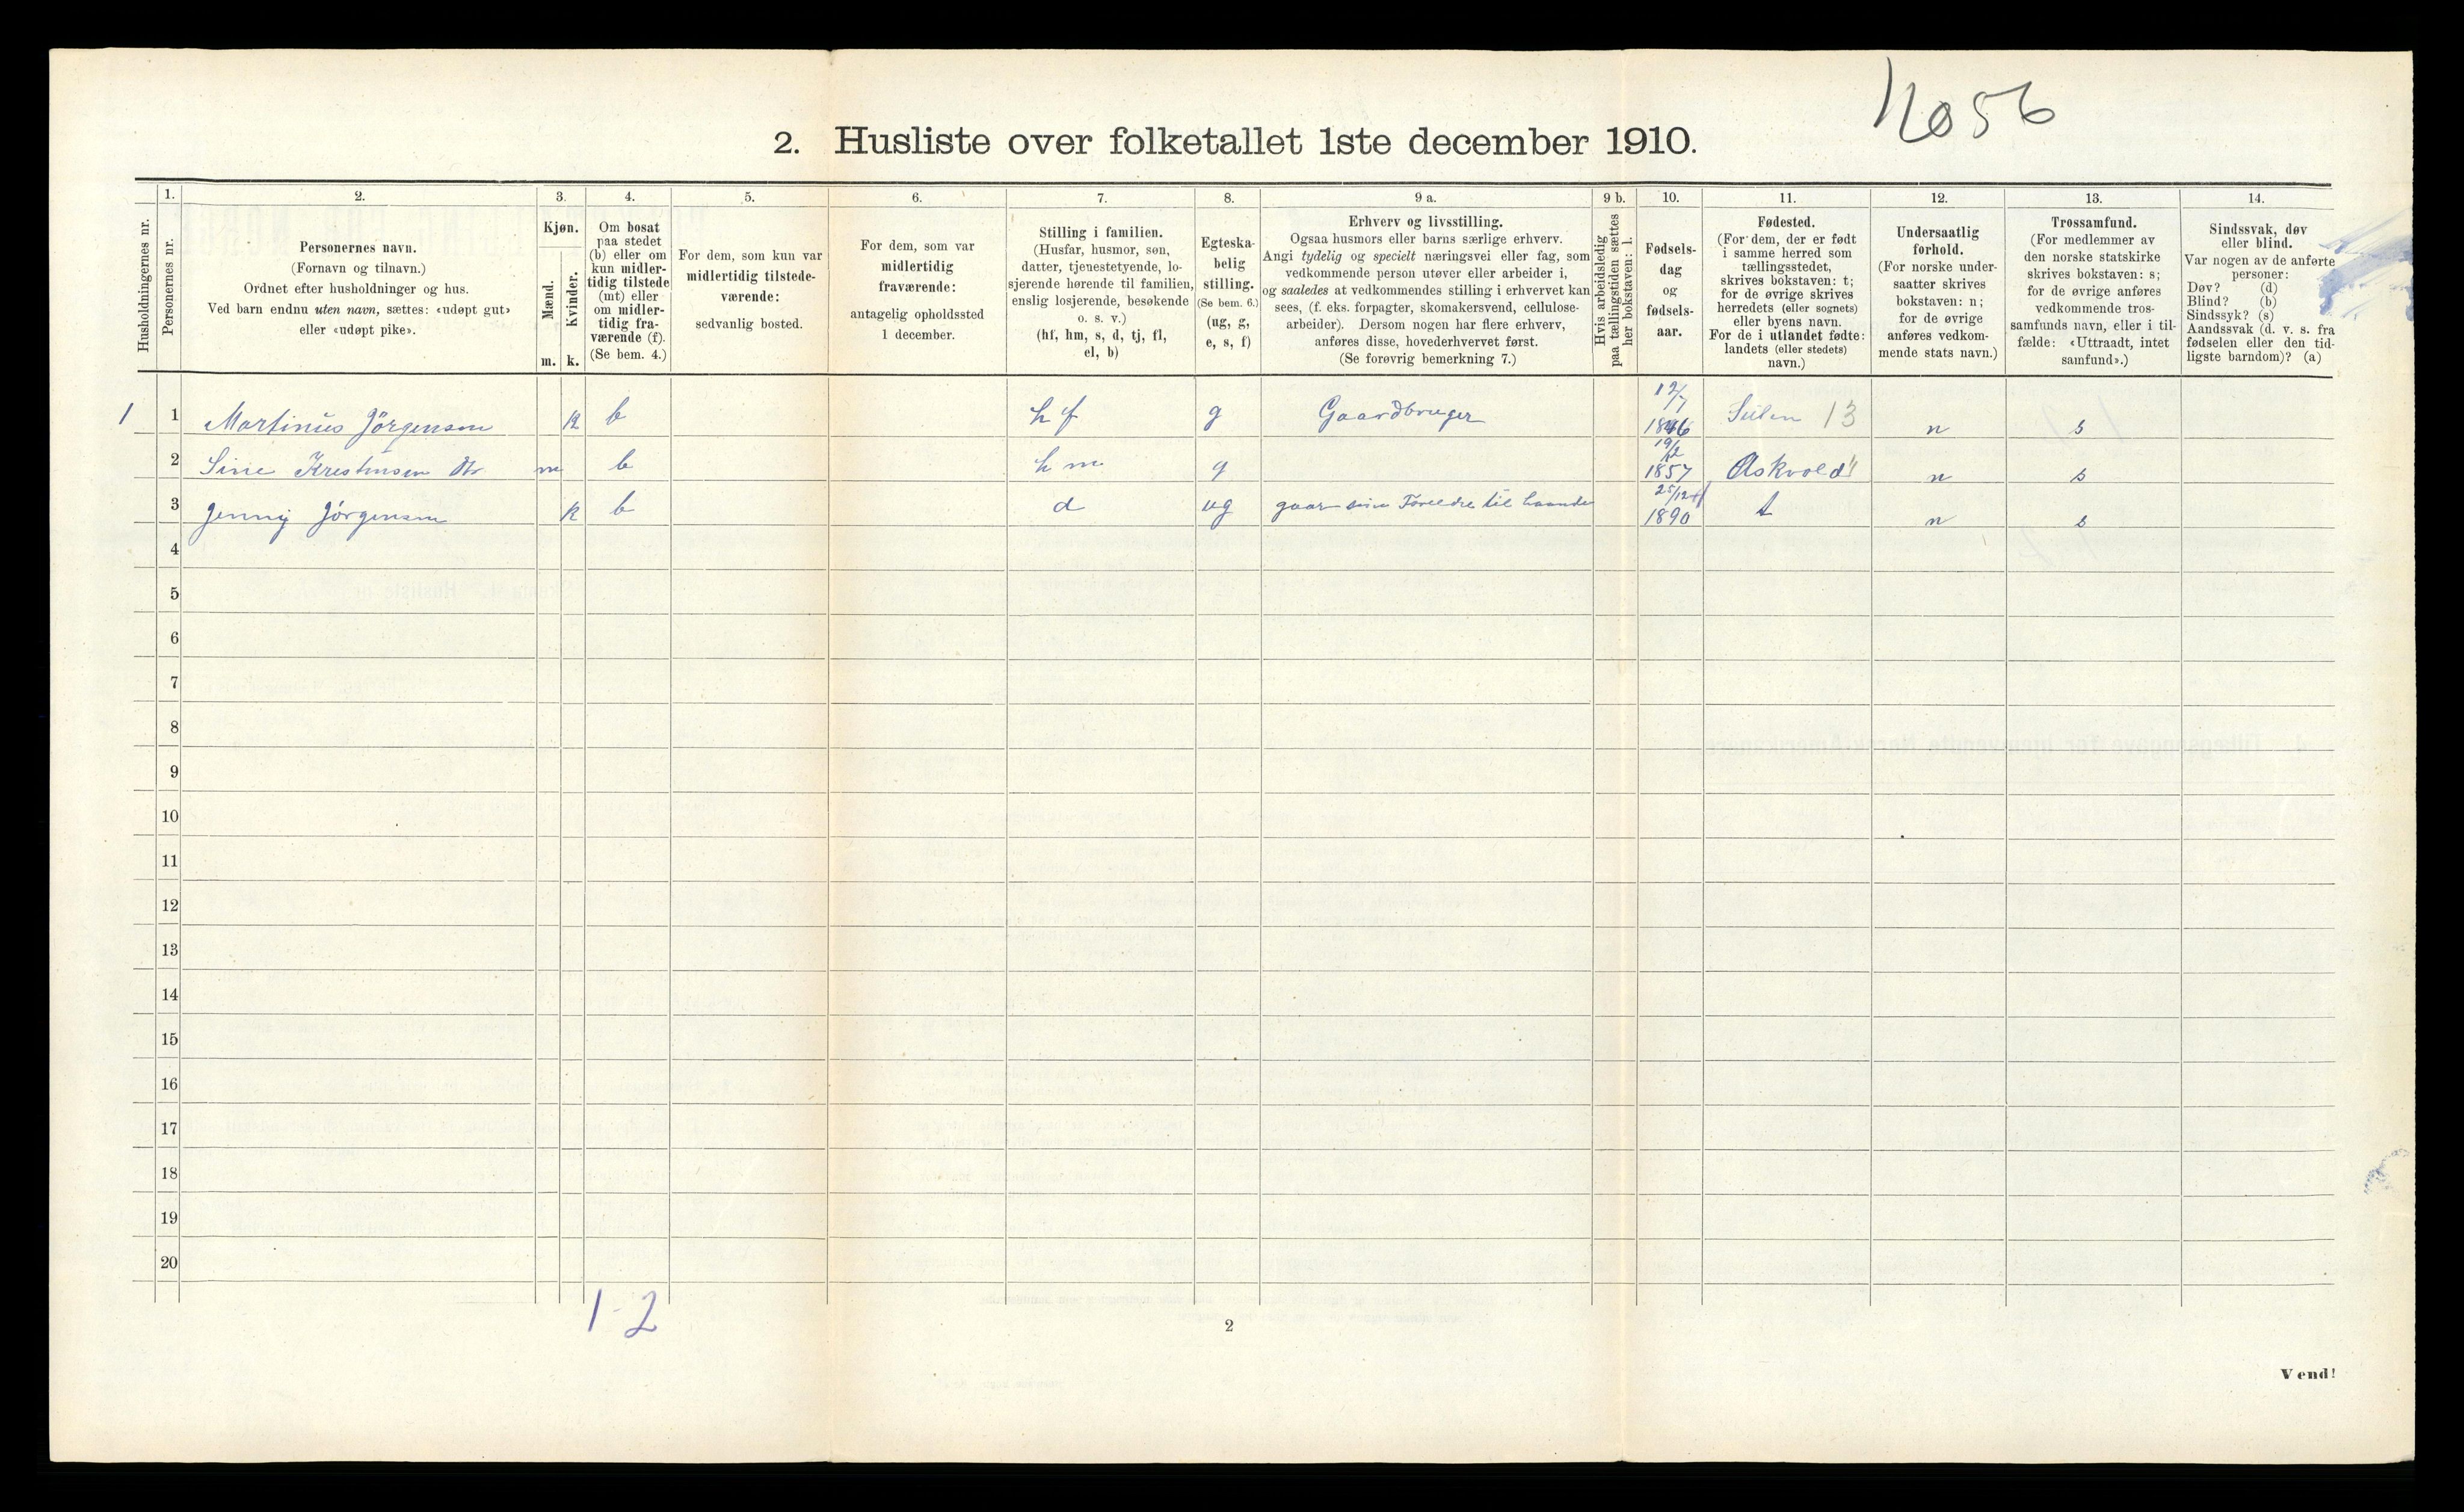 No 56
2. Husliste over folketallet 1ste december 1910.
Husholdningernes nr.
1.
Personernes nr.
2.
Personernes navn.
(Fornavn og tilnavn.)
Ordnet efter husholdninger og hus.
Ved barn endnu uten navn, sættes: «udøpt gut»
eller «udøpt pike».
3.
Kjøn.
Mænd.
Kvinder.
m. k.
4.
Om bosat
paa stedet
(b) eller om
kun midler-
tidig tilstede
(mt) eller
om midler-
tidig fra-
værende (f).
(Se bem. 4.)
5.
For dem, som kun var
midlertidig tilstede-
værende:
sedvanlig bosted.
6.
For dem, som var
midlertidig
fraværende:
antagelig opholdssted
1 december.
7.
Stilling i familien.
(Husfar, husmor, søn,
datter, tjenestetyende, lo-
sjerende hørende til familien,
enslig losjerende, besøkende
o. s. v.)
(hf, hm, s, d, tj, fl,
el, b)
8.
Egteska-
belig
stilling.
(Se bem. 6.)
(ug, g,
e, s, f)
9 a.
Erhverv og livsstilling.
Ogsaa husmors eller barns særlige erhverv.
Angi tydelig og specielt næringsvei eller fag, som
vedkommende person utøver eller arbeider i,
og saaledes at vedkommendes stilling i erhvervet kan
sees, (f. eks. forpagter, skomakersvend, cellulose-
arbeider). Dersom nogen har flere erhverv,
anføres disse, hovederhvervet først.
(Se forøvrig bemerkning 7.)
9 b.
Hvis arbeidsledig
paa tællingstiden sættes
her bokstaven: l.
10.
Fødsels-
dag
og
fødsels-
aar.
11.
Fødested.
(For dem, der er født
i samme herred som
tællingsstedet,
skrives bokstaven: t;
for de øvrige skrives
herredets (eller sognets)
eller byens navn.
For de i utlandet fødte:
landets (eller stedets)
navn.)
12.
Undersaatlig
forhold.
(For norske under-
saatter skrives
bokstaven: n;
for de øvrige
anføres vedkom-
mende stats navn.)
13.
Trossamfund.
(For medlemmer av
den norske statskirke
skrives bokstaven: s;
for de øvrige anføres
vedkommende tros-
samfunds navn, eller i til-
fælde: «Uttraadt, intet
samfund».)
14.
Sindssvak, døv
eller blind.
Var nogen av de anførte
personer:
Døv? (d)
Blind? (b)
Sindssyk? (s)
Aandssvak (d. v. s. fra
fødselen eller den tid-
ligste barndom)? (a)
1 1 Martinus Jörgensen k b hf g Gaardbruger 12/7 1846 Sulen 13 n s
2 Sine Krestensen m b hm g 1857 Askvold n s
3 Jenny Jörgensen k b d ug gaar sine Foreldre til haande 25/12 1890 t n s
4
5
6
7
8
9
10
11
12
13
14
15
16
17
18
19
20
1-2
2
Vend!